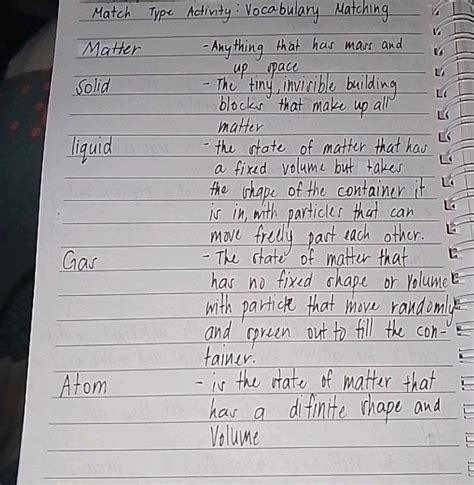 Match Type Activity: Vocabulary Matching
Matter - Anything that has mass and
up space
Solid - The tiny, invisible building
blocks that make up all
matter
liquid - the state of matter that has
a fixed volume but takes
the shape of the container it
is in, with particles that can
move freely past each other.
Gas - The state of matter that
has no fixed shape or volume
with particle that move randomly
and spreen out to fill the con-
tainer.
Atom - is the state of matter that
has a difinite shape and
Volume